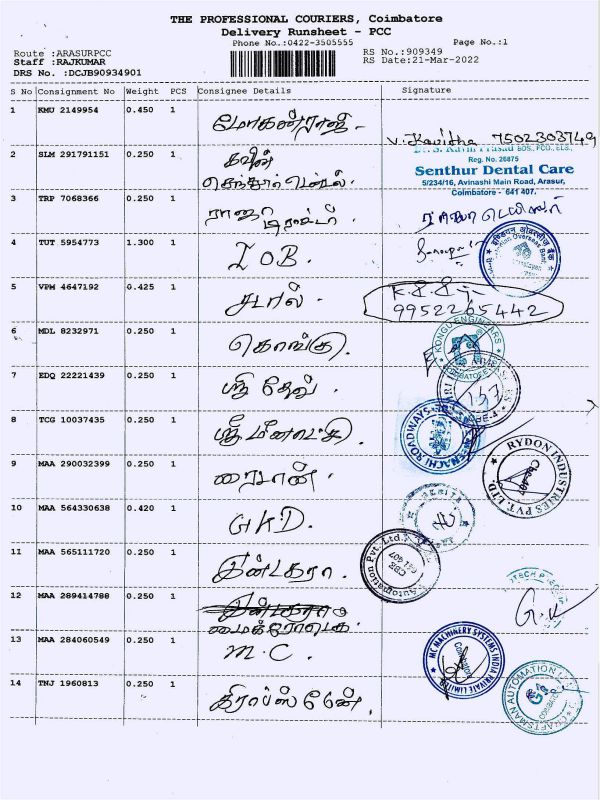 THE PROFESSIONAL COURIERS, Coimbatore
Delivery Runsheet - PCC
Phone No.:0422-3505555 Page No.:1
Route :ARASURPCC RS No.:909349
Staff :RAJKUMAR RS Date:21-Mar-2022
DRS No. :DCJB90934901
S No Consignment No Weight PCS Consignee Details Signature
1 KMU 2149954 0.450 1 மோகன்ராஜ்
V. Kavitha 7502303749
2 SLM 291791151 0.250 1 கவின்
Reg. No. 26875
Senthur Dental Care
5/234/16, Avinashi Main Road, Arasur,
Coimbatore - 641 407.
3 TRP 7068366 0.250 1 ராஜா
4 TUT 5954773 1.300 1 I.O.B.
5 VPM 4647192 0.425 1
9952265442
6 MDL 8232971 0.250 1 கொங்கு.
KONGU ENGINEERS
7 EDQ 22221439 0.250 1 ஸ்ரீ தேவ்
8 TCG 10037435 0.250 1 ஸ்ரீ மீனாட்சி
ROADWAYS
9 MAA 290032399 0.250 1 ரைடான்.
RYDON INDUSTRIES PVT. LTD.
10 MAA 564330638 0.420 1 G.K.D.
11 MAA 565111720 0.250 1 இன்டகரா.
Automation Pvt. Ltd.
CBE
641 407
12 MAA 289414788 0.250 1
G.K
13 MAA 284060549 0.250 1 M.C.
MC MACHINERY SYSTEMS INDIA PRIVATE LIMITED
14 TNJ 1960813 0.250 1 கிராப்ஸ்மேன்.
CRAFTSMAN AUTOMATION